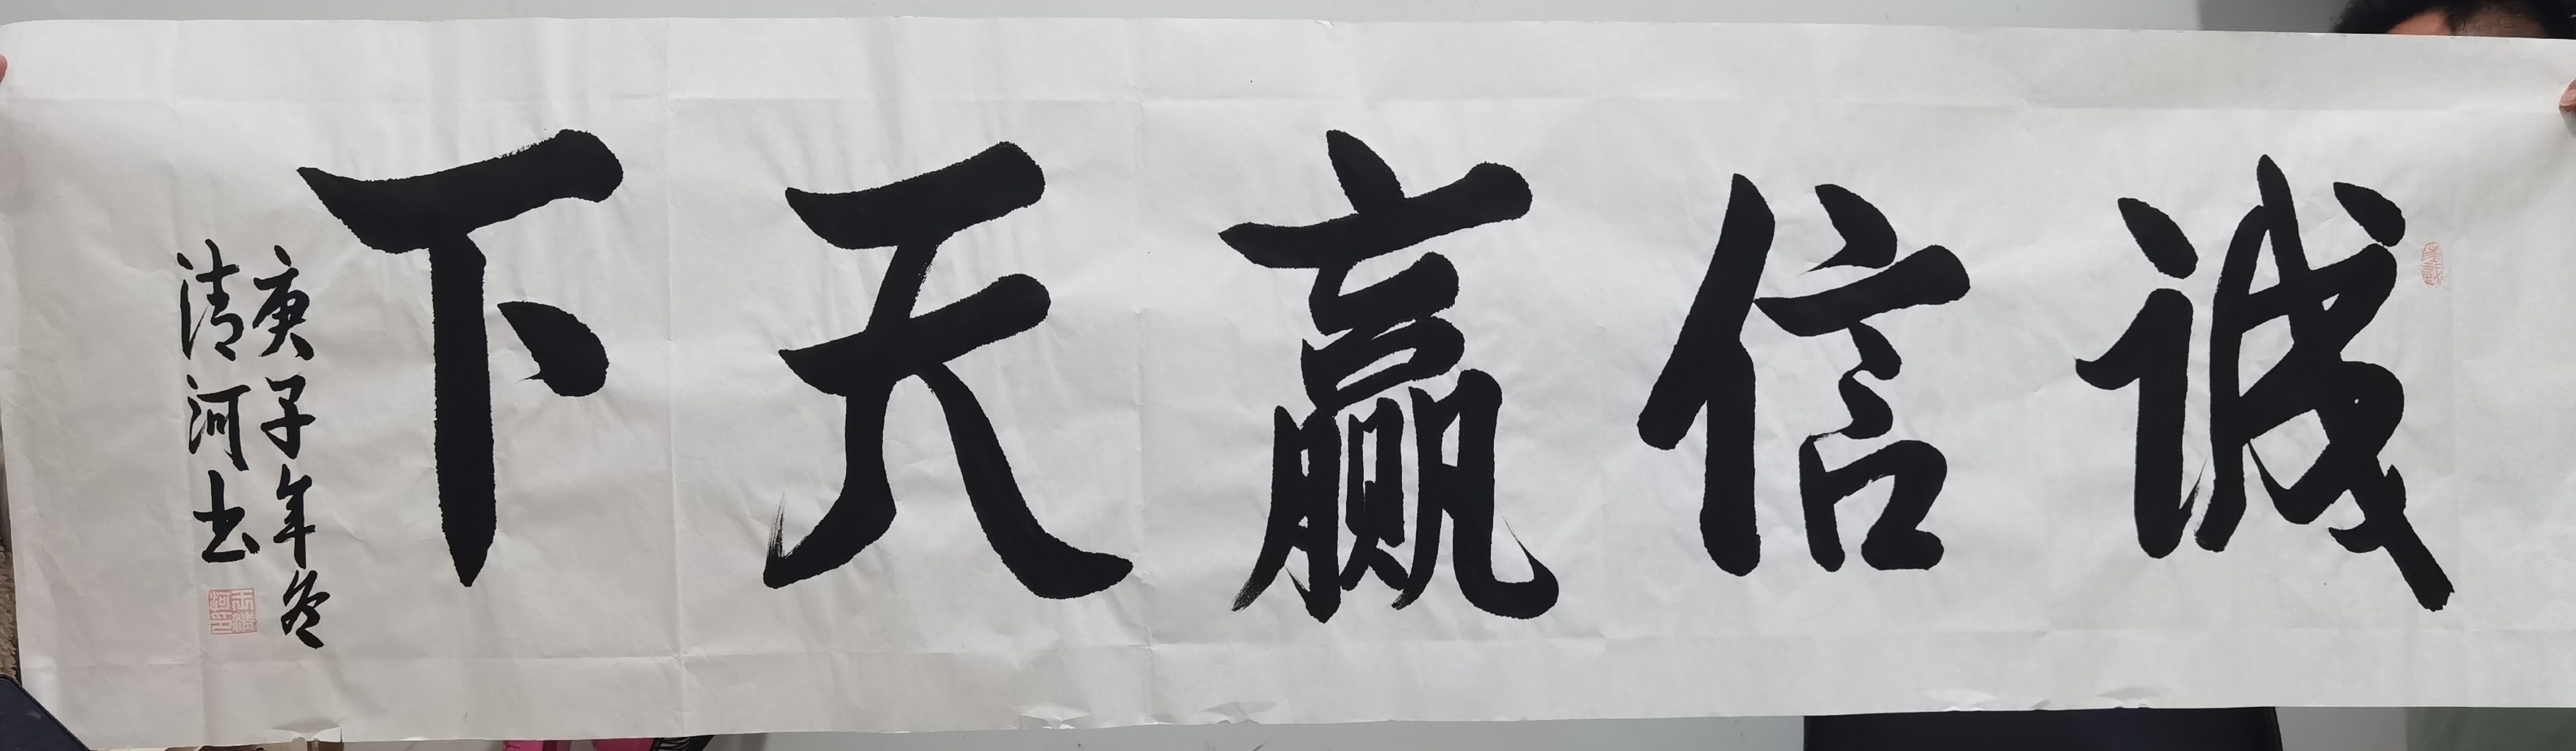 诚信赢天下
庚子年冬
清河书